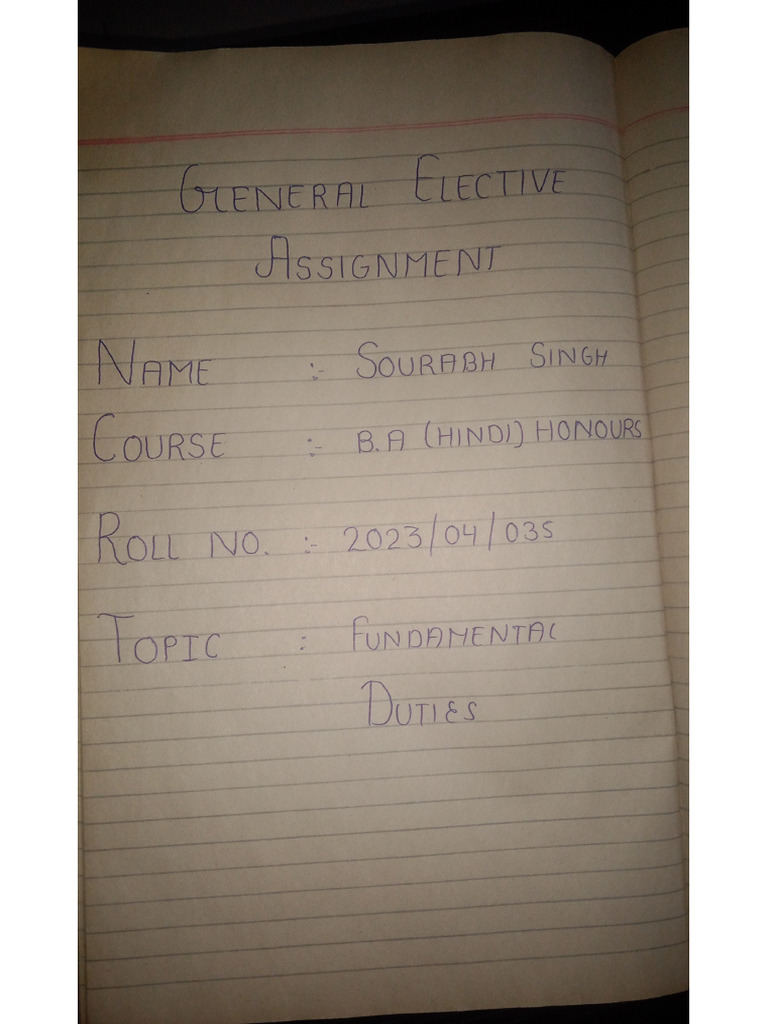 GENERAL ELECTIVE
ASSIGNMENT
NAME :- SOURABH SINGH
COURSE :- B.A (HINDI) HONOURS
ROLL NO. :- 2023/04/035
TOPIC : FUNDAMENTAL
DUTIES